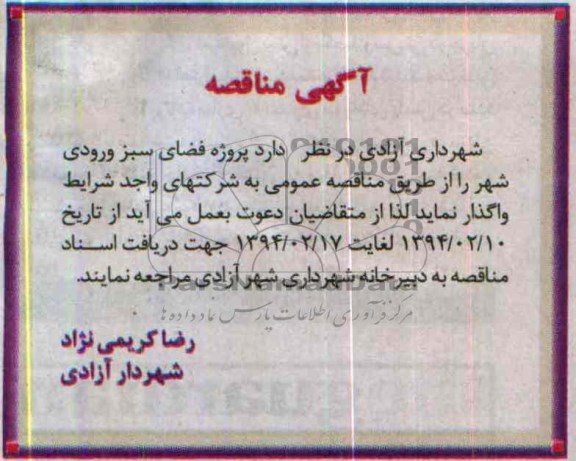 آگهی مناقصه
شهرداری آزادی در نظر دارد پروژه فضای سبز ورودی
شهر را از طریق مناقصه عمومی به شرکتهای واجد شرایط
واگذار نماید لذا از متقاضیان دعوت بعمل می آید از تاریخ
۱۳۹۴/۰۲/۱۰ لغایت ۱۳۹۴/۰۲/۱۷ جهت دریافت اسناد
مناقصه به دبیرخانه شهرداری شهر آزادی مراجعه نمایند.
مرکز فرآوری اطلاعات پارس نماد داده ها
رضا کریمی نژاد
شهردار آزادی